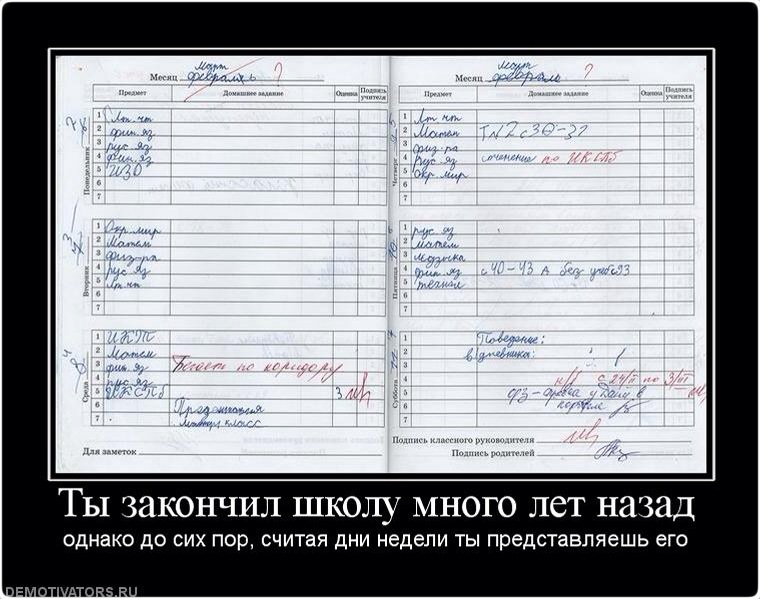 Март
Месяц февраль ?
Предмет Домашнее задание Оценка Подпись учителя
Понедельник
1 Лит. чт
2 фин. яз
3 рус. яз
4 фин. яз
5 ИЗО
6
7
Вторник
1 Окр. мир
2 Матем
3 физ-ра
4 рус. яз
5 Лит. чт
6
7
Среда
1 ИКТ
2 Матем
3 фин. яз Бегает по коридору
4 рус. яз
5 ИКСПб 3
6
7 класс
Для заметок
Март
Месяц февраль ?
Предмет Домашнее задание Оценка Подпись учителя
Четверг
1 Лит. чт
2 Матем
3 физ-ра
4 рус. яз сочинение по ИКСПб
5 Окр. мир
6
7
Пятница
1 рус. яз
2 матем
3 музыка
4 фин. яз с 40-43
5 технол
6
7
Суббота
1 Поведение:
2 в дневнике:
3
4 с 24/II по 3/III
5
6
7
Подпись классного руководителя
Подпись родителей
Ты закончил школу много лет назад
однако до сих пор, считая дни недели ты представляешь его
DEMOTIVATORS.RU